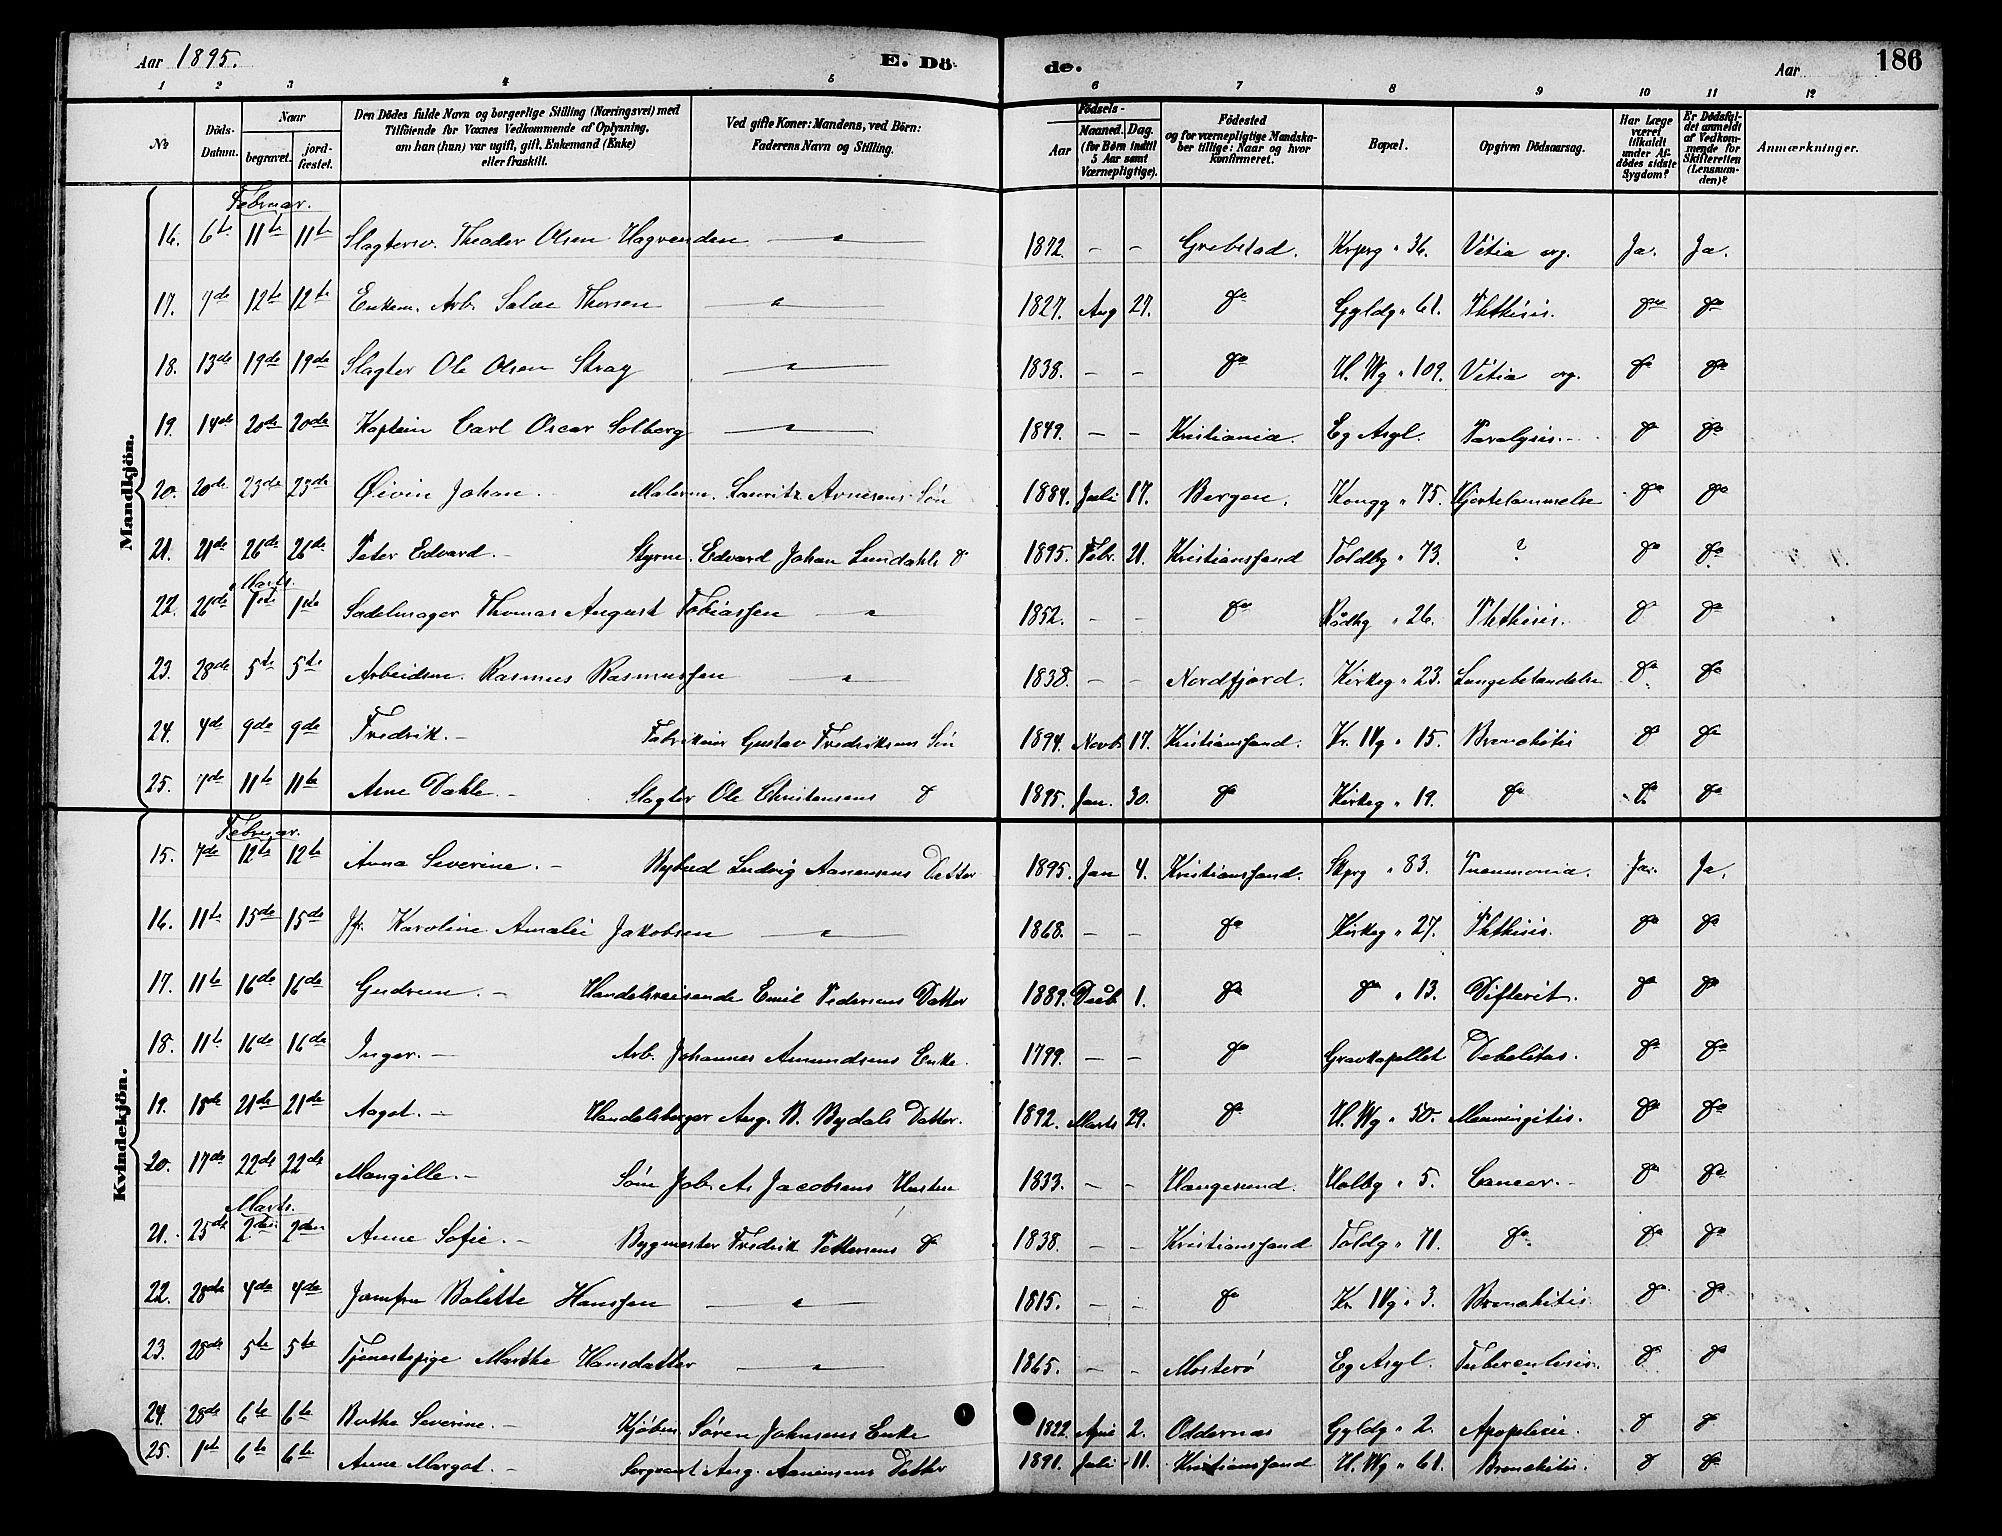 Aar 1895. E. Dö de. Aar 186
1 2 3 4 5 6 7 8 9 10 11 12
No Döds-Datum. Naar begravet. jord-fæstet. Den Dödes fulde Navn og borgerlige Stilling (Næringsvei) med Tilföiende for Voxnes Vedkommende af Oplysning, om han (hun) var ugift, gift, Enkemand (Enke) eller fraskilt. Ved gifte Koner: Mandens, ved Börn: Faderens Navn og Stilling. Födsels- Aar Maaned. Dag. (for Börn indtil 5 Aar samt Værnepligtige). Födested og for værnepligtige Mandskaber tillige: Naar og hvor konfirmeret. Bopæl. Opgiven Dödsaarsag. Har Læge været tilkaldt under Afdödes sidste Sygdom? Er Dödsfaldet anmeldt af Vedkommende for Skifteretten (Lensmanden)? Anmærkninger.
Mandkjön.
Februar.
16. 6te 11te 11te Slagtersv. Theodor Olsen Hagvenden — " — 1872. – – Grebstad. Krprg " 36. Vitia org. Ja. Ja.
17. 7de 12te 12te Enkem. Arb. Salve Thorsen — " — 1827. Aug 27. do Gyldg " 61. Phthisis. do do
18. 13de 19de 19de Slagter Ole Olsen Stray — " — 1838. – – do U. Wg " 109. Vitia org. do do
19. 14de 20de 20de Kaptein Carl Oscar Solberg — " — 1849. – – Kristiania. Eg Asyl. Paralysis. – do do
20. 20de 23de 23de Øivin Johan. Malerm. Lauritz Arnesens Søn 1884. Juli 17. Bergen. Kongg " 75. Hjertelammelse do do
21. 21de 26de 26de Peter Edvard. – Styrm. Edvard Johan Lundahls do 1895. Febr. 21. Kristianssand Toldbg " 73. ? do do
Marts.
22. 26de 1ste 1ste Sadelmager Thomas August Tobiassen — " — 1852. – – do Rådhg " 26. Phthisis. do do
23. 28de 5te 5te Arbeidsm. Rasmus Rasmussen — " — 1838. – – Nordfjord. Kirkeg " 23. Lungebetændelse do do
24. 4de 9de 9de Fredrik. – Fabrikeier Gustav Fredriksens Søn 1894. Novb. 17. Kristianssand. Kr. IVg " 15. Bronchitis do do
25. 7de 11te 11te Arne Dahle. – Slagter Ole Christensens do 1895. Jan. 30. do Kirkeg " 19. do do do
Kvindekjön.
Februar.
15. 7de 12te 12te Anna Severine. – Bybud Ludvig Aanensens Datter 1895. Jan 4. Kristianssand. Skprg " 83. Pneumonia. Ja. Ja.
16. 11te 15de 15de Jfr. Karoline Amalie Jakobsen — " — 1868. – – do Kirkeg " 27. Phthisis. do do
17. 11te 16de 16de Gudrun. – Handelsreisende Emil Pedersens Datter 1889. Decb 1. do do " 13. Difterit. do do
18. 11te 16de 16de Inger. – Arb. Johannes Amundsens Enke. 1799. – – do Gravkapellet Debelitas. do do
19. 18de 21de 21de Aagot. – Handelsborger Aug. B. Bydals Datter. 1892. Marts 29. do U. Wg " 50. Menningitis. do do
20. 17de 22de 22de Mangille. – Søm. Job. A. Jacobsens Hustru 1833. – – Haugesund. Holbg " 5. Cancer. – do do
Marts.
21. 25de 2den 2den Anne Sofie. – Bygmester Fredrik Pettersens do 1838. – – Kristianssand Toldg " 71. do do do
22. 28de 4de 4de Jomfru Bolette Hanssen — " — 1815. – – do Kr. IVg " 3. Bronchitis. do do
23. 28de 5te 5te Tjenestepige Marthe Hansdatter — " — 1865. – – Mosterø Eg Asyl. Tuberculosis. do do
24. 28de 6te 6te Berthe Severine. – Kjøbm Søren Johnsens Enke 1822. April 2. Oddernæs Gyldg " 2. Apoplexie. do do
25. 1ste 6te 6te Anne Margot. – Sergeant Aug. Aanensens Datter 1891. Juli 11. Kristianssand U. Wg " 61. Bronchitis. do do